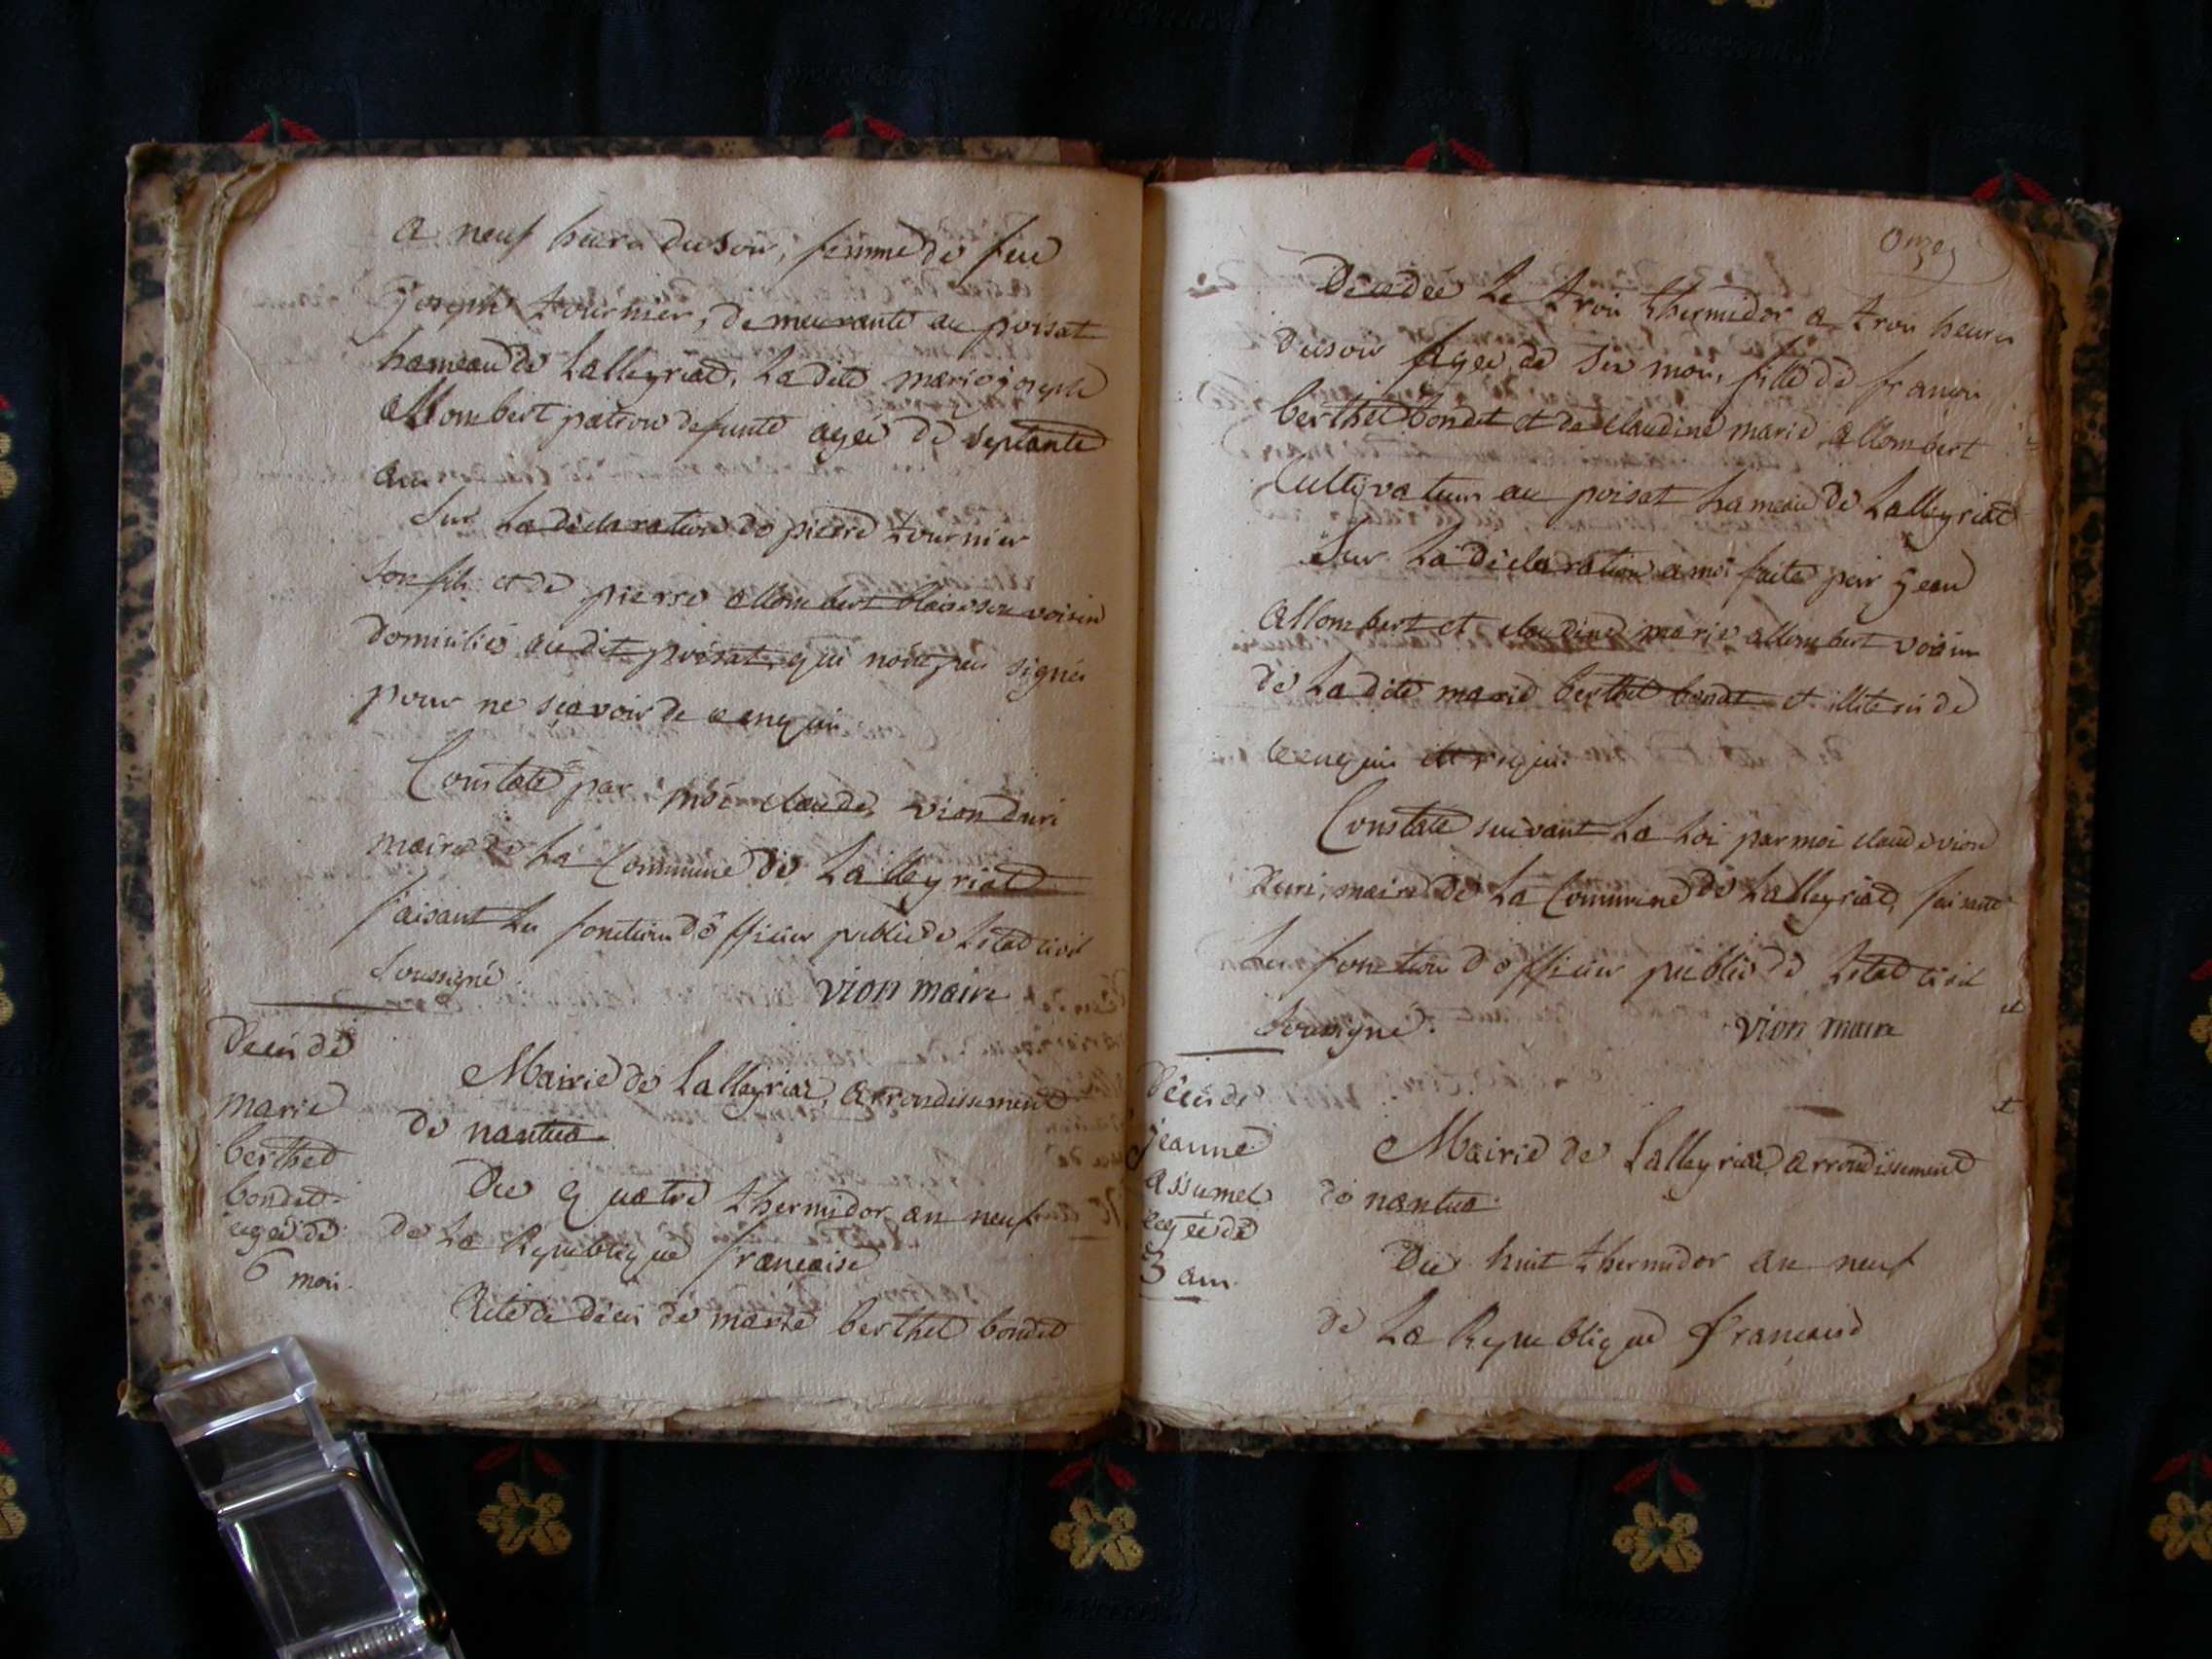 a neuf heure du soir, femme de feu
joseph tournier, demeurante au poisat
hameau de Lalleyriat, La dite marie joseph
allombert patrou defunte agée de septante
ans
Sur La déclaration de pierre tournier
son fils et de pierre allombert blaise son voisin
domiciliés audit poisat, qui n'ont pas signés
pour ne sçavoir de ce enquis
Constaté par moi claude vion duri
maire de La Commune de Lalleyriat
faisant les fonctions d'officier public de L'état civil
Soussigné.
vion maire
Décés de
marie
berthet
bondet
agée de
6 mois.
Mairie de Lalleyriat, arrondissement
de nantua
Du quatre thermidor an neuf
de La Republique francaise
Acte de décés de marie berthet bondet
Onze
Décédée Le trois thermidor a trois heures
du soir agée de six mois, fille de francois
berthet bondet et de claudine marie allombert
Cultivateurs au poisat hameau de Lalleyriat
Sur La déclaration a moi faite par jean
allombert et claudine marie allombert voisins
de La dite marie berthet bondet et illiterés de
ce enquis
Constaté suivant La Loi par moi claude vion
duri, maire de La Commune de Lalleyriat, faisant
Les fonctions d'officier public de L'état civil
Soussigné.
vion maire
Décés de
jeanne
assumel
agée de
3 ans.
Mairie de Lalleyriat arrondissement
de nantua.
Du huit thermidor an neuf
de La Republique francaise